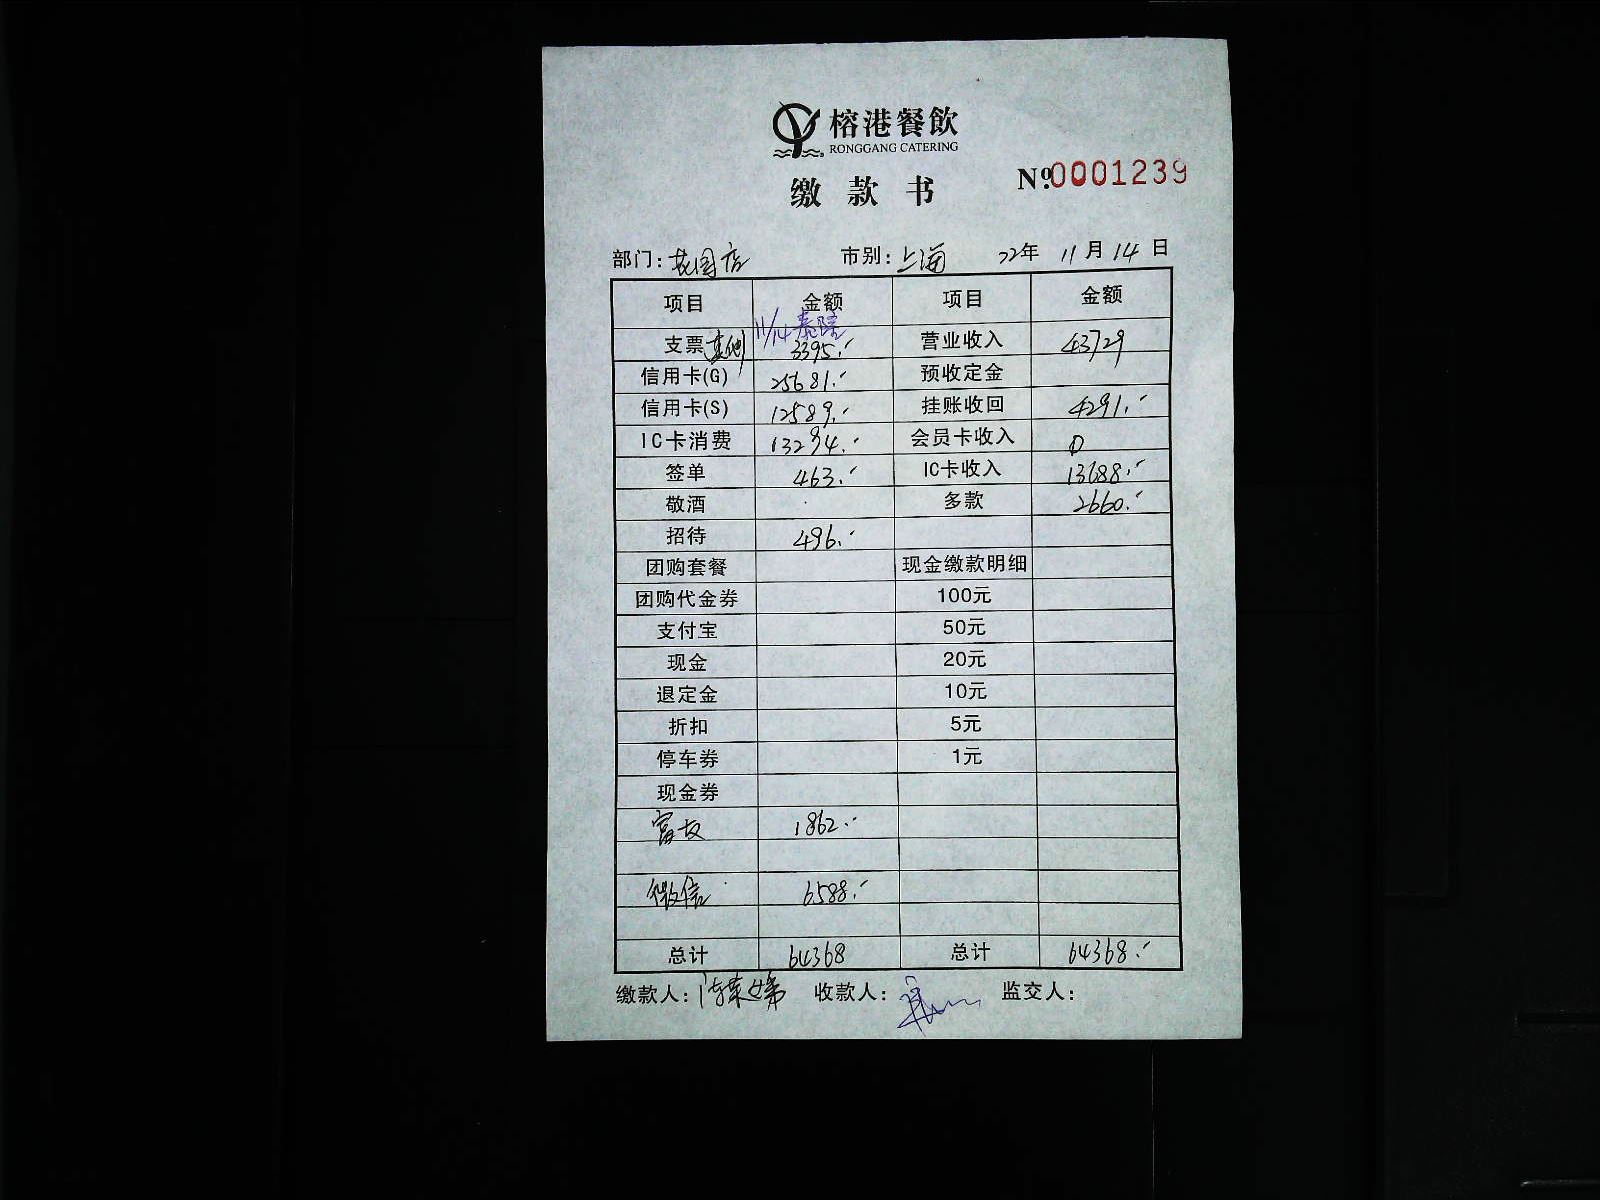 榕港餐飲
RONGGANG CATERING
缴款书
Nº 0001239
部门: 花园店 市别: 上海 22年 11月 14日
项目 金额 项目 金额
11/14
支票 其他 3395.- 营业收入 43729
信用卡(G) 25681.- 预收定金
信用卡(S) 12589.- 挂账收回 4291.-
IC卡消费 13294.- 会员卡收入 0
签单 463.- IC卡收入 13688.-
敬酒 多款 2660.-
招待 496.-
团购套餐 现金缴款明细
团购代金券 100元
支付宝 50元
现金 20元
退定金 10元
折扣 5元
停车券 1元
现金券
富友 1862.-
微信 6588.-
总计 64368 总计 64368.-
缴款人: 收款人: 监交人: